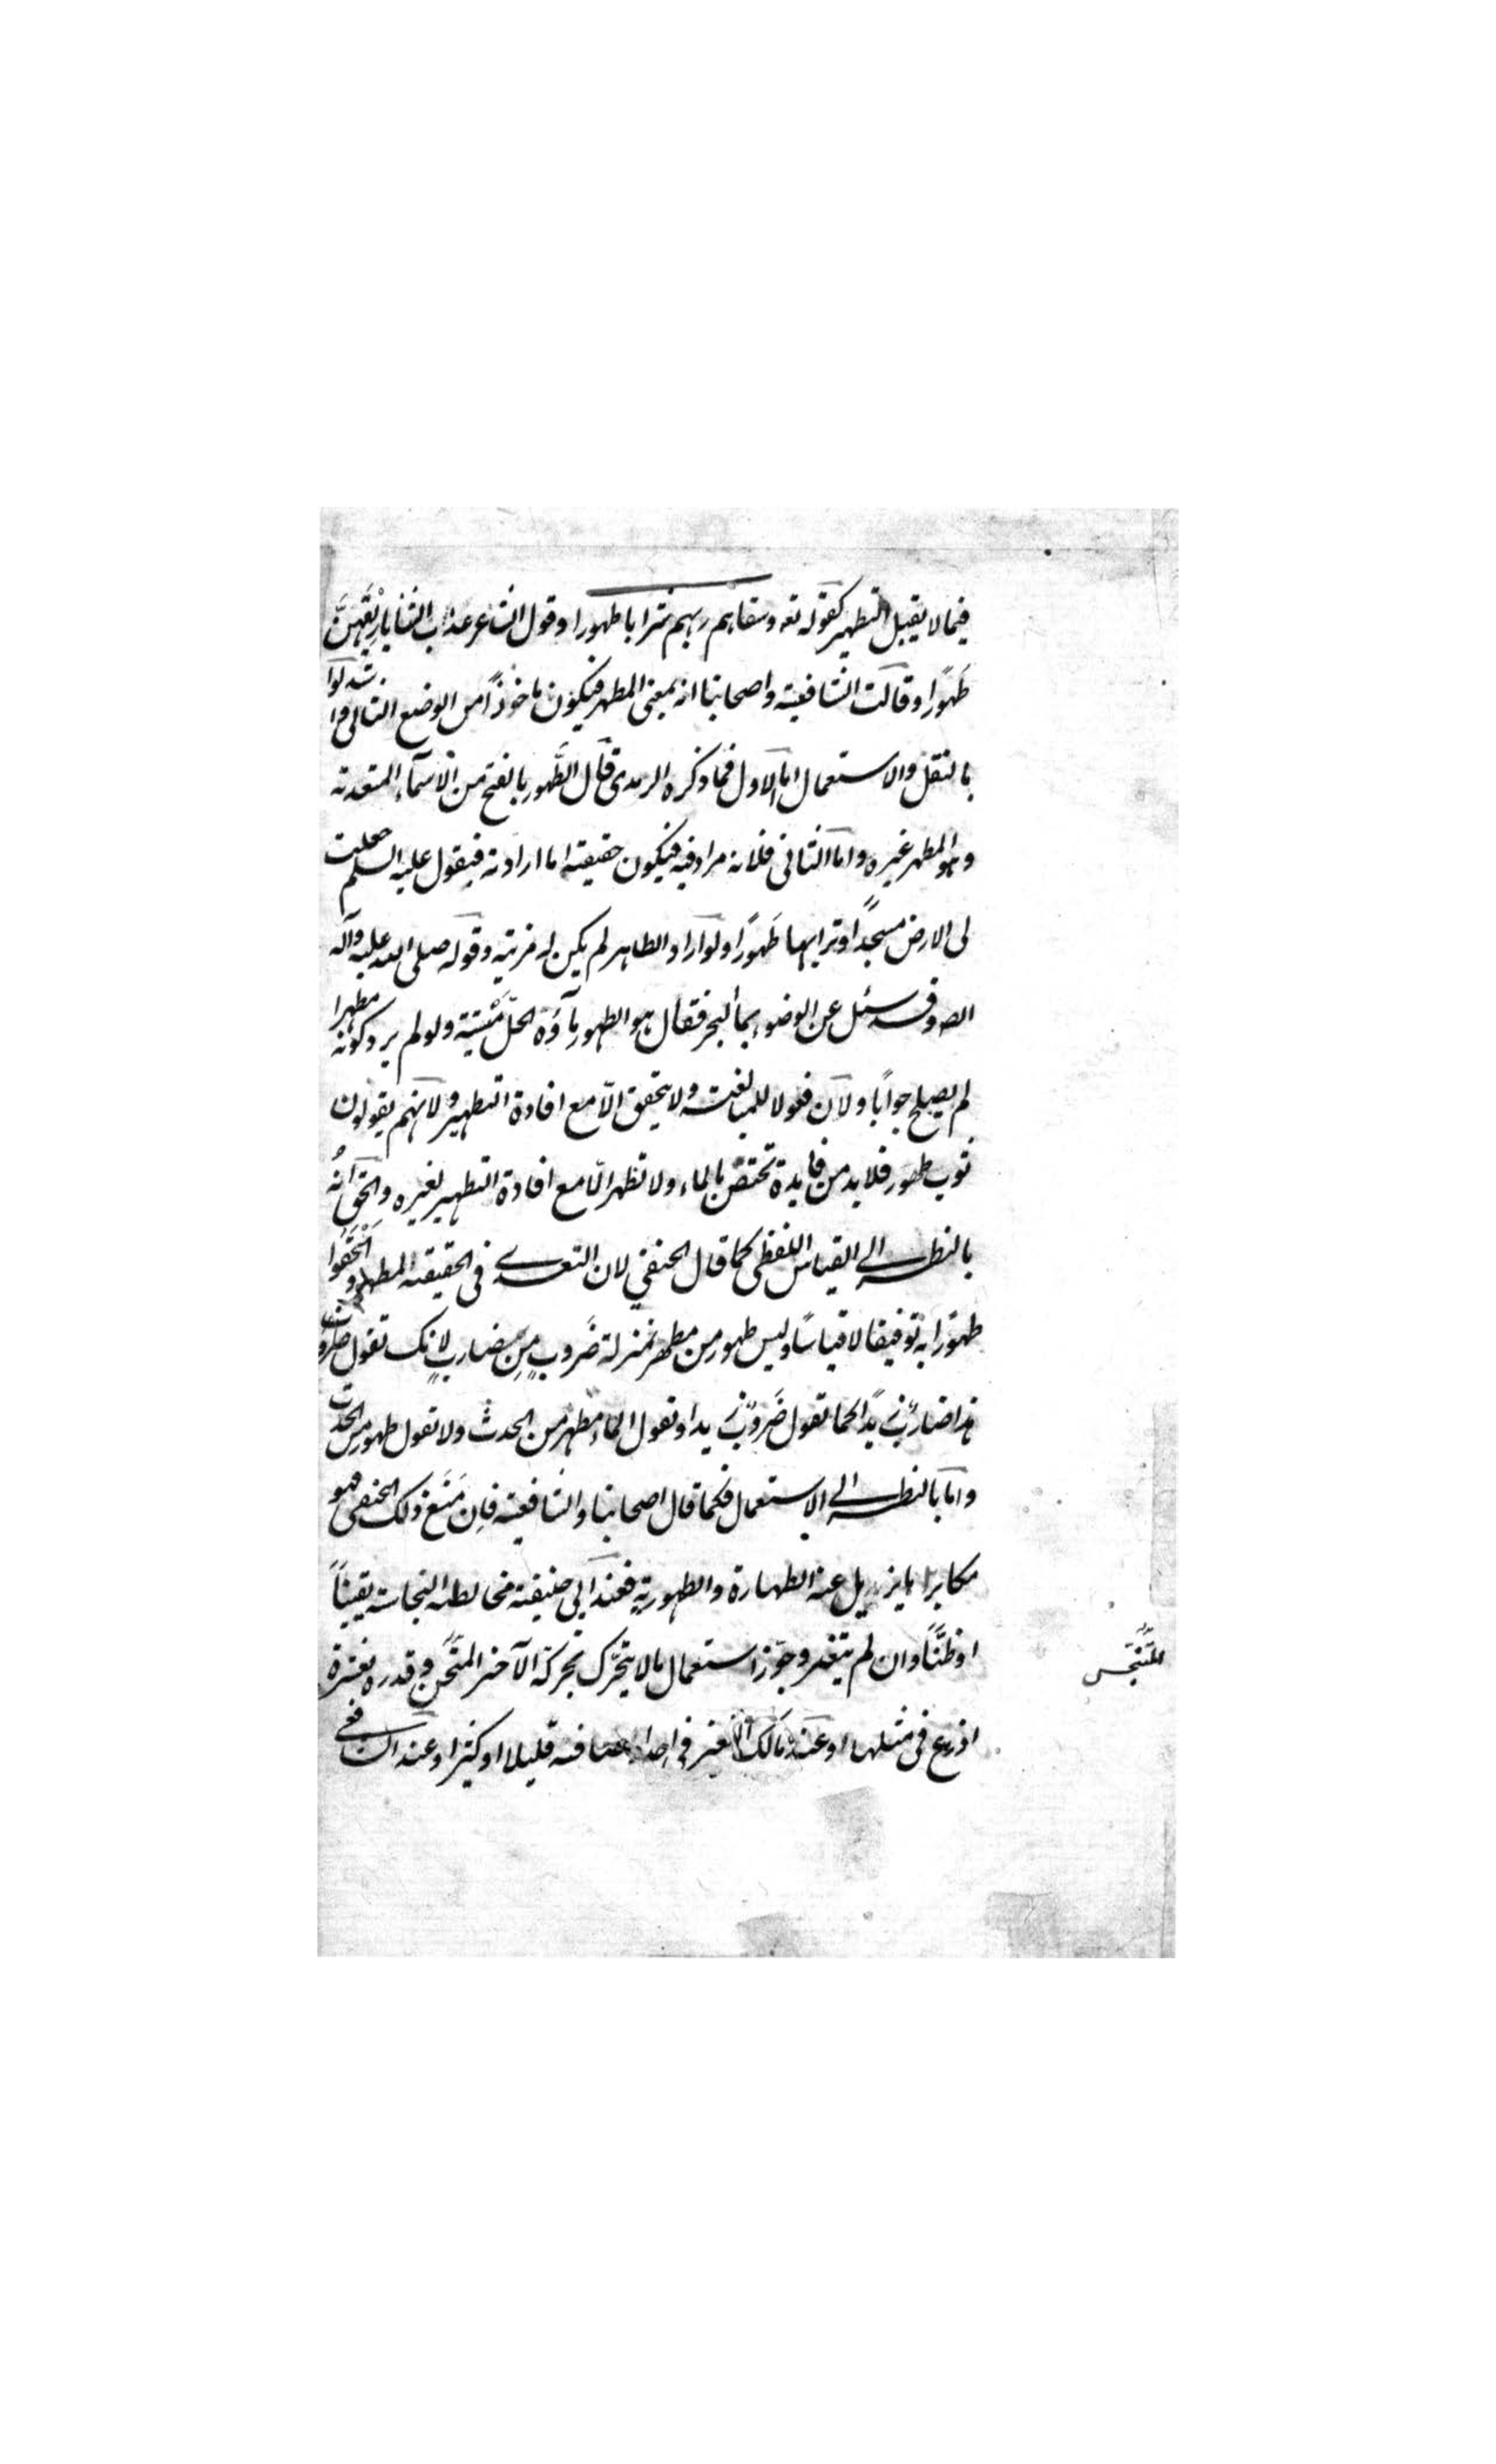 فيما لا يقبل التطهير كقوله تعه وسقاهم ربهم شرابا طهورا وقول الشاعر عذاب الثنايا ريقهنّ
طَهورًا وقالت الشافعية واصحابنا انه بمعنى المطهر فيكون ماخوذًا من الوضع الثانى استدلوا
بالنقل والاستعمال امّا الاول فما ذكره قال الطَّهور بالفتح من الاسمآء المتعدية
وهو المطهر غيره واما الثانى فلانه مراد فيه فيكون حقيقة اما ارادته فبقول عليه السلم جعلت
لى الارض مسجدًا وترابها طَهورًا ولو اراد الطاهر لم يكن له مزية وقوله صلى الله عليه وآله
وقد سئل عن الوضوء بمآ البحر فقال هو الطهور مآؤه الحلّ مَيْتته ولو لم يرد كونه مطهرا
لم يصلح جوابًا ولانّ فعولا للمبالغة ولا يتحقق الّا مع افادة التطهير ولانّهم يقولون
ثوب طهور فلابد من فايدة تختصّ بالماء ولا تظهر الّا مع افادة التطهير لغيره والحقّ انّه
بالنظر الى القياس اللفظى كما قال الحنفى لان التعدى فى الحقيقة المطهر و الْحَقُوا
طهورًا به توقيفا لا قياسًا وليس طهور من مطهر بمنزلة ضَروب من ضارب لانك تقول
هذا ضاربٌ زيدًا كما تقول ضَروبٌ زيدا وتقول الماء مطهر من الحدث ولا تقول طهور من الحدث
وامّا بالنظر الى الاستعمال فكما قال اصحابنا والشافعية فاِن مَنَعَ ذلك الحنفى فهو
مكابر ما يزيل عنه الطهارة والطهورية فعند ابى حنيفة مخالطه النجاسة يقينًا
او ظنًّا وان لم يتغير وجوّز استعمال ما لا يتحرّك بحركة الآخر المتنجّس وقدره بعشرة
اذرع فى مثلها وعند مالك التغير فى احد اوصافه قليلا او كثيرا وعند الشافعى
المتنجّس